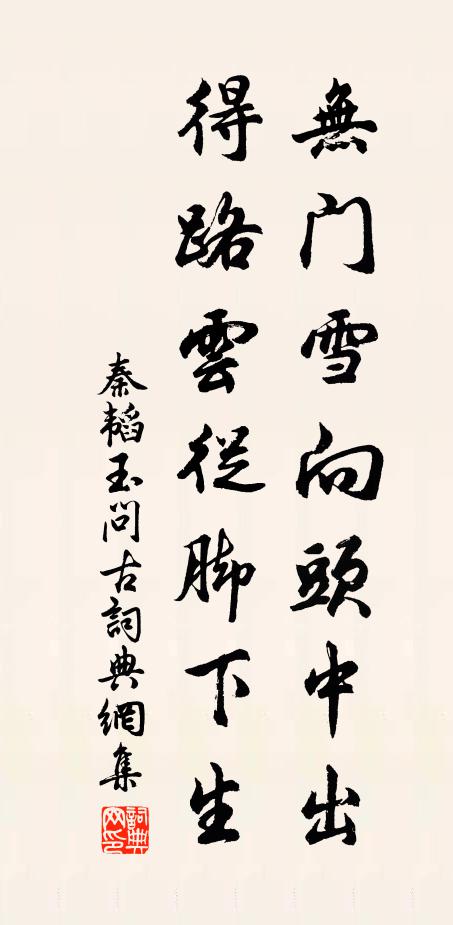 無门雪向頭中出
得路雲從脚下生
秦韬玉問古詞典網集
詞典網印